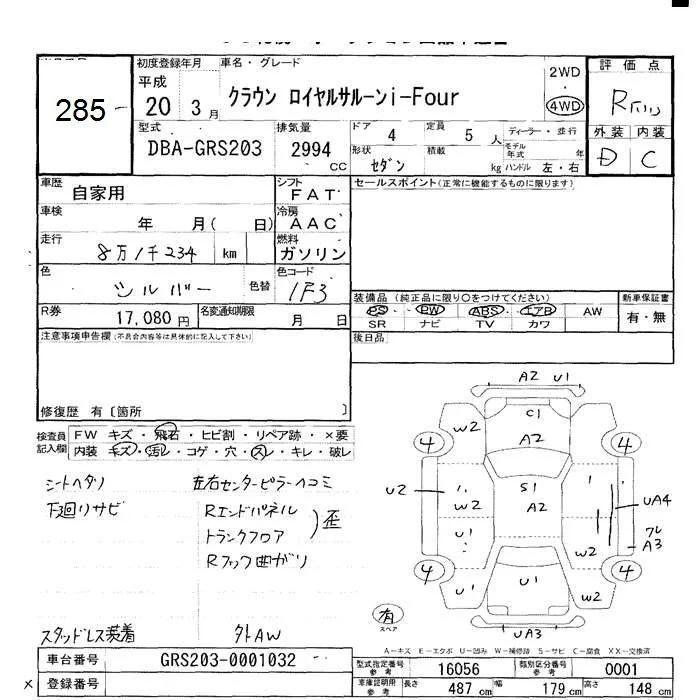 285
初度登録年月
平成
20 3 月
車名・グレード
クラウン ロイヤルサルーンi-Four
2WD
4WD
評価点
R
外装 内装
D C
型式
DBA-GRS203
排気量
2994 CC
ドア 4
定員 5 人
ディーラー・並行
形状 セダン
積載 kg
モデル年式 年
ハンドル 左・右
車歴 自家用
シフト FAT
車検 年 月( 日)
冷房 AAC
走行 8万1千234 km
燃料 ガソリン
色 シルバー 色替
色コード 1F3
R券 17,080 円
名変通知期限 月 日
セールスポイント(正常に機能するものに限ります)
装備品(純正品に限り○をつけてください)
新車保証書
PS・PW・ABS・エアB AW
有・無
SR ナビ TV カワ
後日品
注意事項申告欄(不具合内容等は具体的に記入して下さい)
修復歴 有〔箇所 〕
検査員記入欄
FW キズ・飛石・ヒビ割・リペア跡・×要
内装 キズ・汚レ・コゲ・穴・スレ・キレ・破レ
シートヘタリ
下廻りサビ
左右センターピラーヘコミ
Rエンドパネル
トランクフロア
)歪
Rフック曲がり
スタッドレス装着
外AW
A2 U1
W2 C1
A2
4 4
U2 W2 S1 A2 UA4
U1 W2 クレ A3
4 4
U1 U1 W2
UA3
有
スペア
A-キズ E-エクボ U-凹み W-補修跡 S-サビ C-腐食 XX-交換済
車台番号 GRS203-0001032
x 登録番号
型式指定番号 参考 16056
類別区分番号 参考 0001
車庫証明用 参考 長さ 487 cm 幅 179 cm 高さ 148 cm